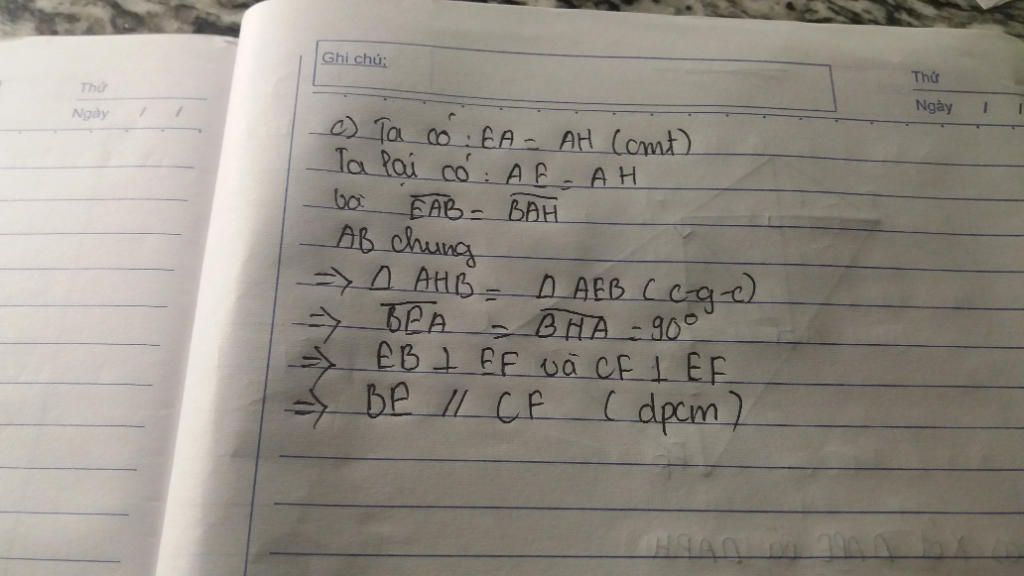 Ghi chú:
Thứ
Ngày / /
Thứ
Ngày / /
c) Ta có : EA = AH (cmt)
Ta lại có : AE = AH
bởi EAB = BAH
AB chung
=> Δ AHB = Δ AEB (c-g-c)
=> BEA = BHA = 90°
=> EB ⊥ EF và CF ⊥ EF
=> BE // CF (dpcm)